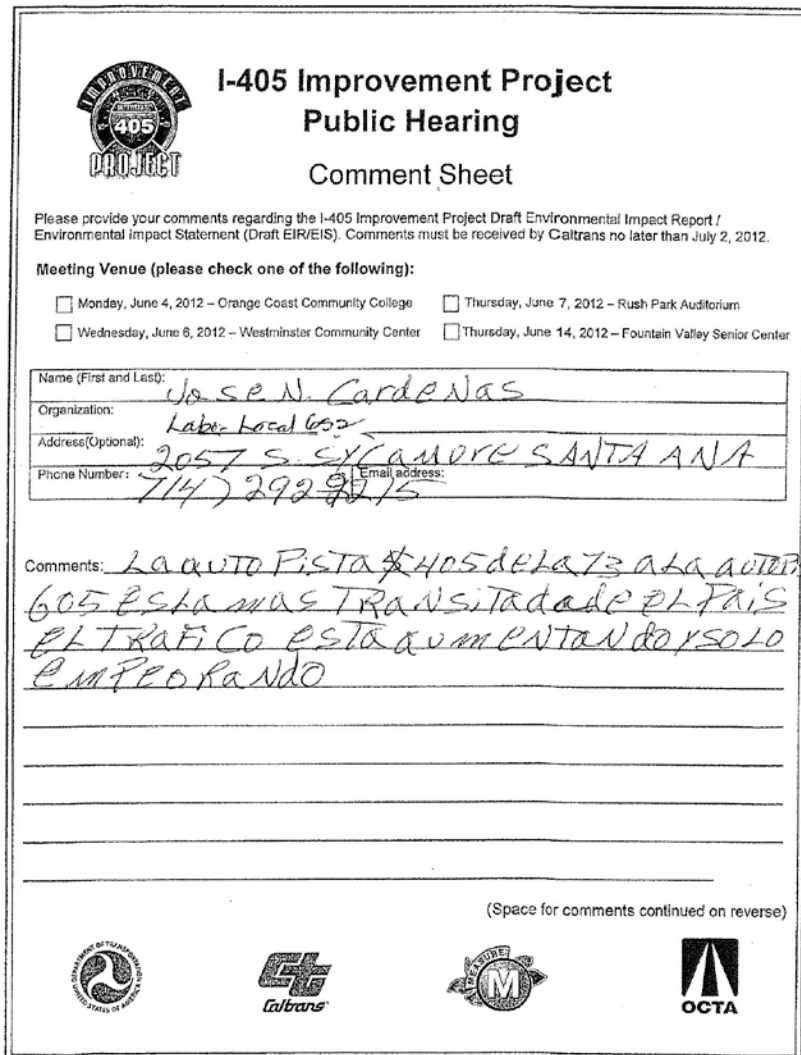 IMPROVEMENT
405
PROJECT
I-405 Improvement Project
Public Hearing
Comment Sheet
Please provide your comments regarding the I-405 Improvement Project Draft Environmental Impact Report /
Environmental Impact Statement (Draft EIR/EIS). Comments must be received by Caltrans no later than July 2, 2012.
Meeting Venue (please check one of the following):
Monday, June 4, 2012 – Orange Coast Community College
Thursday, June 7, 2012 – Rush Park Auditorium
Wednesday, June 6, 2012 – Westminster Community Center
Thursday, June 14, 2012 – Fountain Valley Senior Center
Name (First and Last): Jose N. Cardenas
Organization: Labor Local 652
Address(Optional): 2057 S. SYCAMORE SANTA ANA
Phone Number: 714) 292 Email address:
Comments: La autoPista 405 de La 73 a La autoP.
605 es La mas TRANSiTada de eL Pais
eL TRaFiCo esta aumeNTaNdo Y SoLo
emPeoRaNdo
(Space for comments continued on reverse)
DEPARTMENT OF TRANSPORTATION
UNITED STATES OF AMERICA
Caltrans
MEASURE
M
OCTA